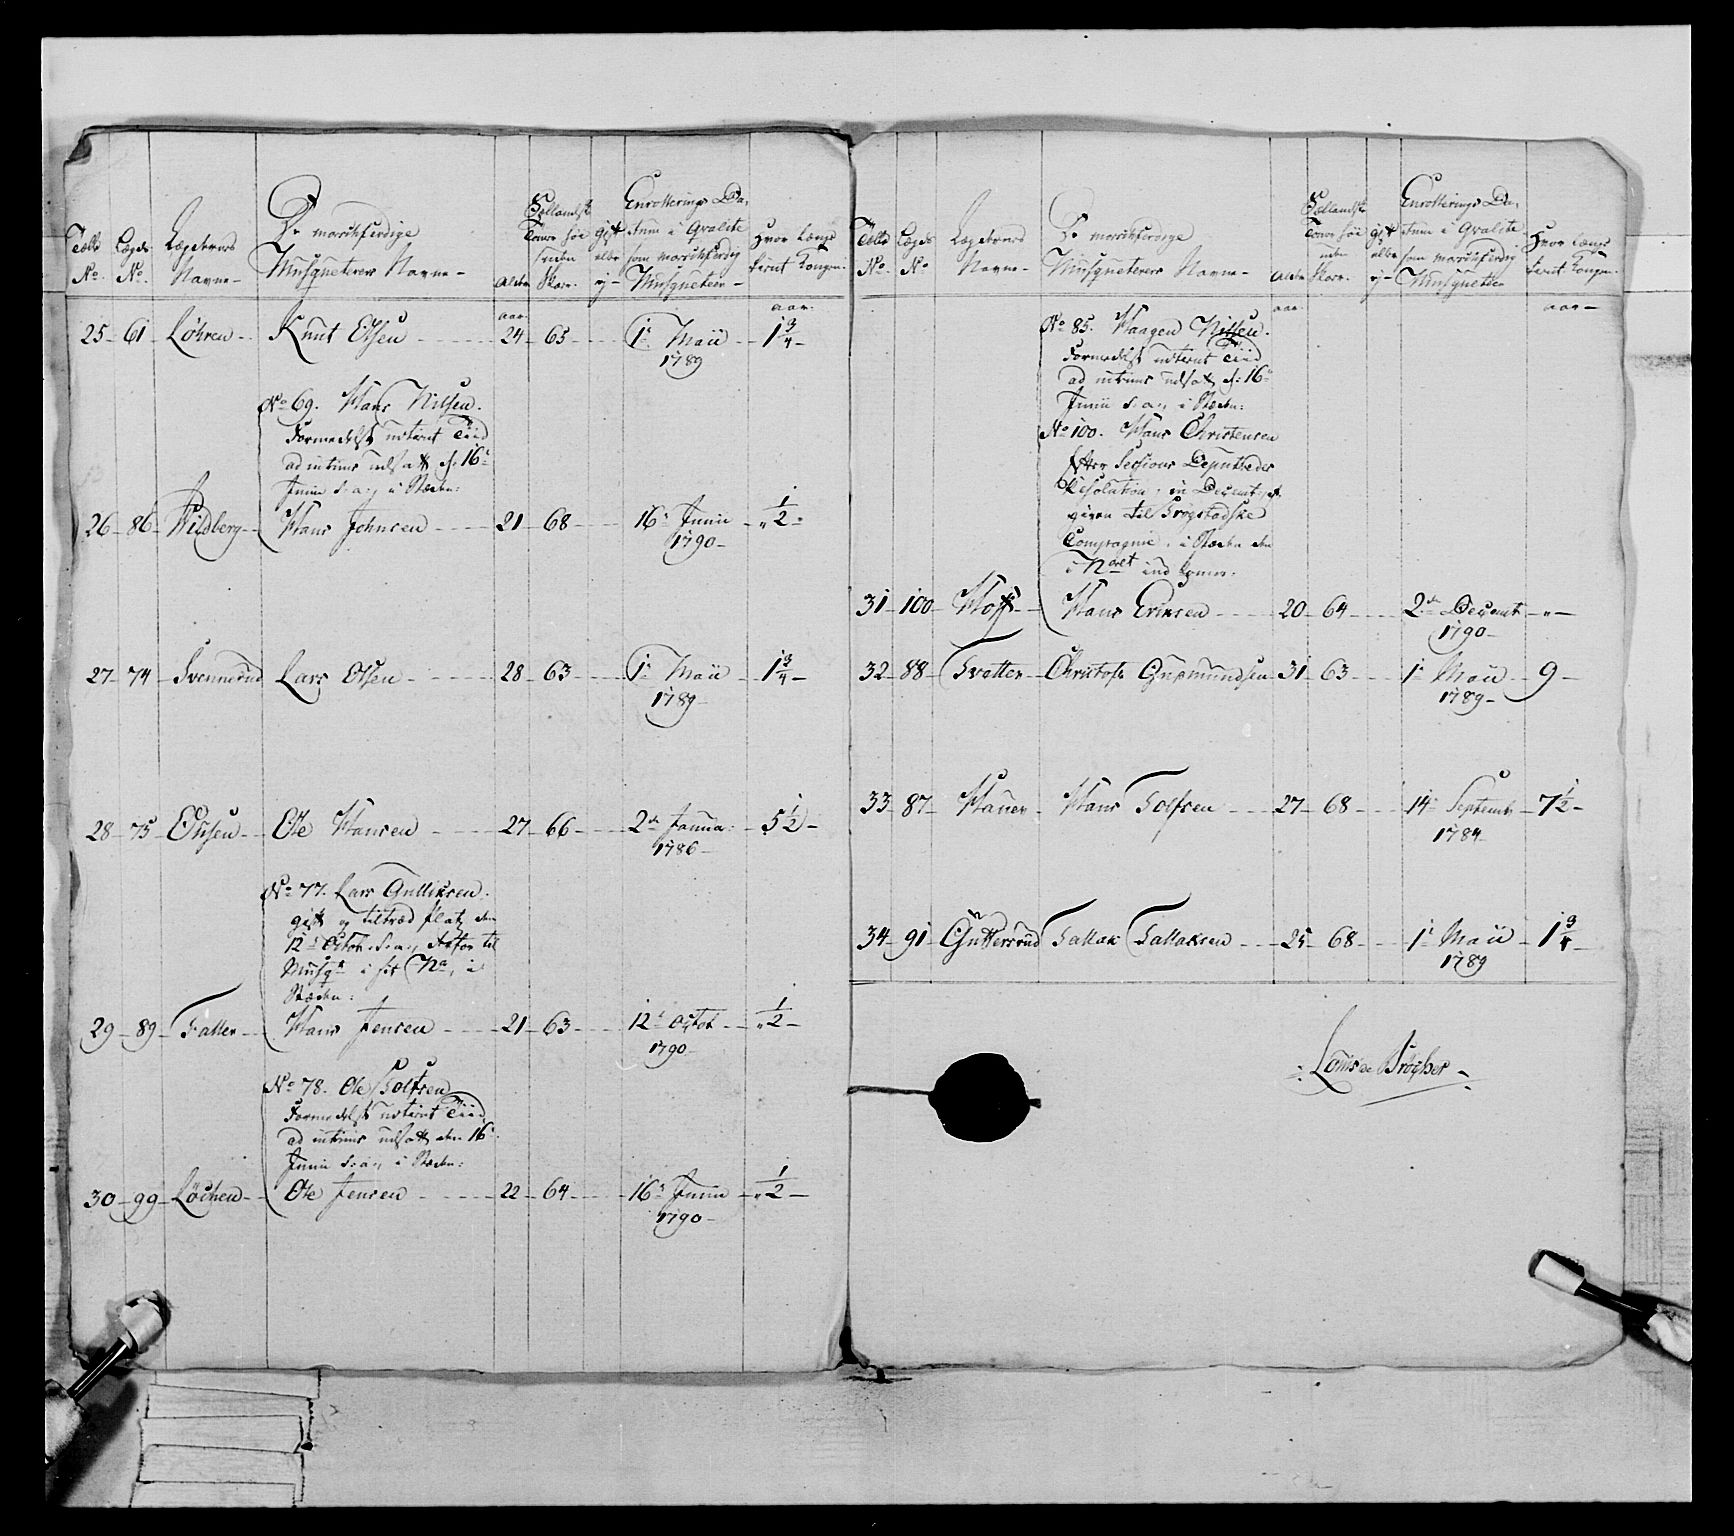 Tælte No. Lægds No. Lægdernes Navne – De marschferdige Musqueterers Navne – Alder Sællandske Tomer høi uden Skoe. gift eller ej – Enrollerings Da, tum i Qvalite som marschferdig Musqueteer – Hvor længe tient Kongen.
aar. aar.
25 – 61 Løhren – Knut Olsen 24 – 63 1te Maii 1 3/4 –
1789
No 69. Hans Nilsen.
Formedelst udtient Tiid
ad intrims udsatt d: 16de
Junii s: a:, i Stæden:
26 – 86 Wildberg – Hans Johnsen 21 – 68 16de Junii – „ 1/2 –
1790 –
27 – 74 Svennerud Lars Olsen 28 – 63 1te Maii – 1 3/4 –
1789 –
28 – 75 Olssen – Ole Hansen 27 – 66 2de Janua: – 5 1/2 –
1786 –
No 77. Lars Gulliksen.
gift og tiltræd Platz den
12te Octob: s: a:,
Musqr i sit Na, i
Stæden:
29 – 89 – Falter – Hans Jensen 21 – 63 12te Octob – „ 1/2 –
1790
No 78. Ole Tolfsen
Formedelst udtient Tiid,
ad intrims udsatt den 16de
Junii s: a:, i Stæden:
30 – 99 – Løchen – Ole Jensen 22 – 64 16de Junii – „ 1/2 –
1790 –
Tælte No. Lægds No Lægdernes Navne – De marschferdige Musqueterers Navne – Alder Sællandske Tomer høi uden Skoe. gift eller ej – Enrollerings Da, tum i Qvalite som marschferdig Musqueteer Hvor længe tient Kongen.
aar. aar –
No 85. Haagen Nilsen.
Formedelst udtient Tiid
ad intrims udsatt d: 16de
Junii s: a:, i Stæden:
No 100. Hans Christensen
Efter Sessions Deputeredes
Resolution, in Decembr af-
given til Trøgstadske
Compagnie, i Stæden den
i Noret ind kommer:
31 – 100 – Hoff – Hans Eriksen 20 – 64 2de Decembr – „ –
1790 –
32 – 88 Tvetter – Christoph Gudmundsen 31 – 63 1te Maii – 9 –
1789 –
33 – 87 – Hauer – Hans Tolfsen 27 – 68 14de Septembr – 7 1/2 –
1784
34 – 91 Guttersrud Tallak Tallaksen 25 – 68 1te Maii – 1 3/4 –
1789
Louis de Brøcher